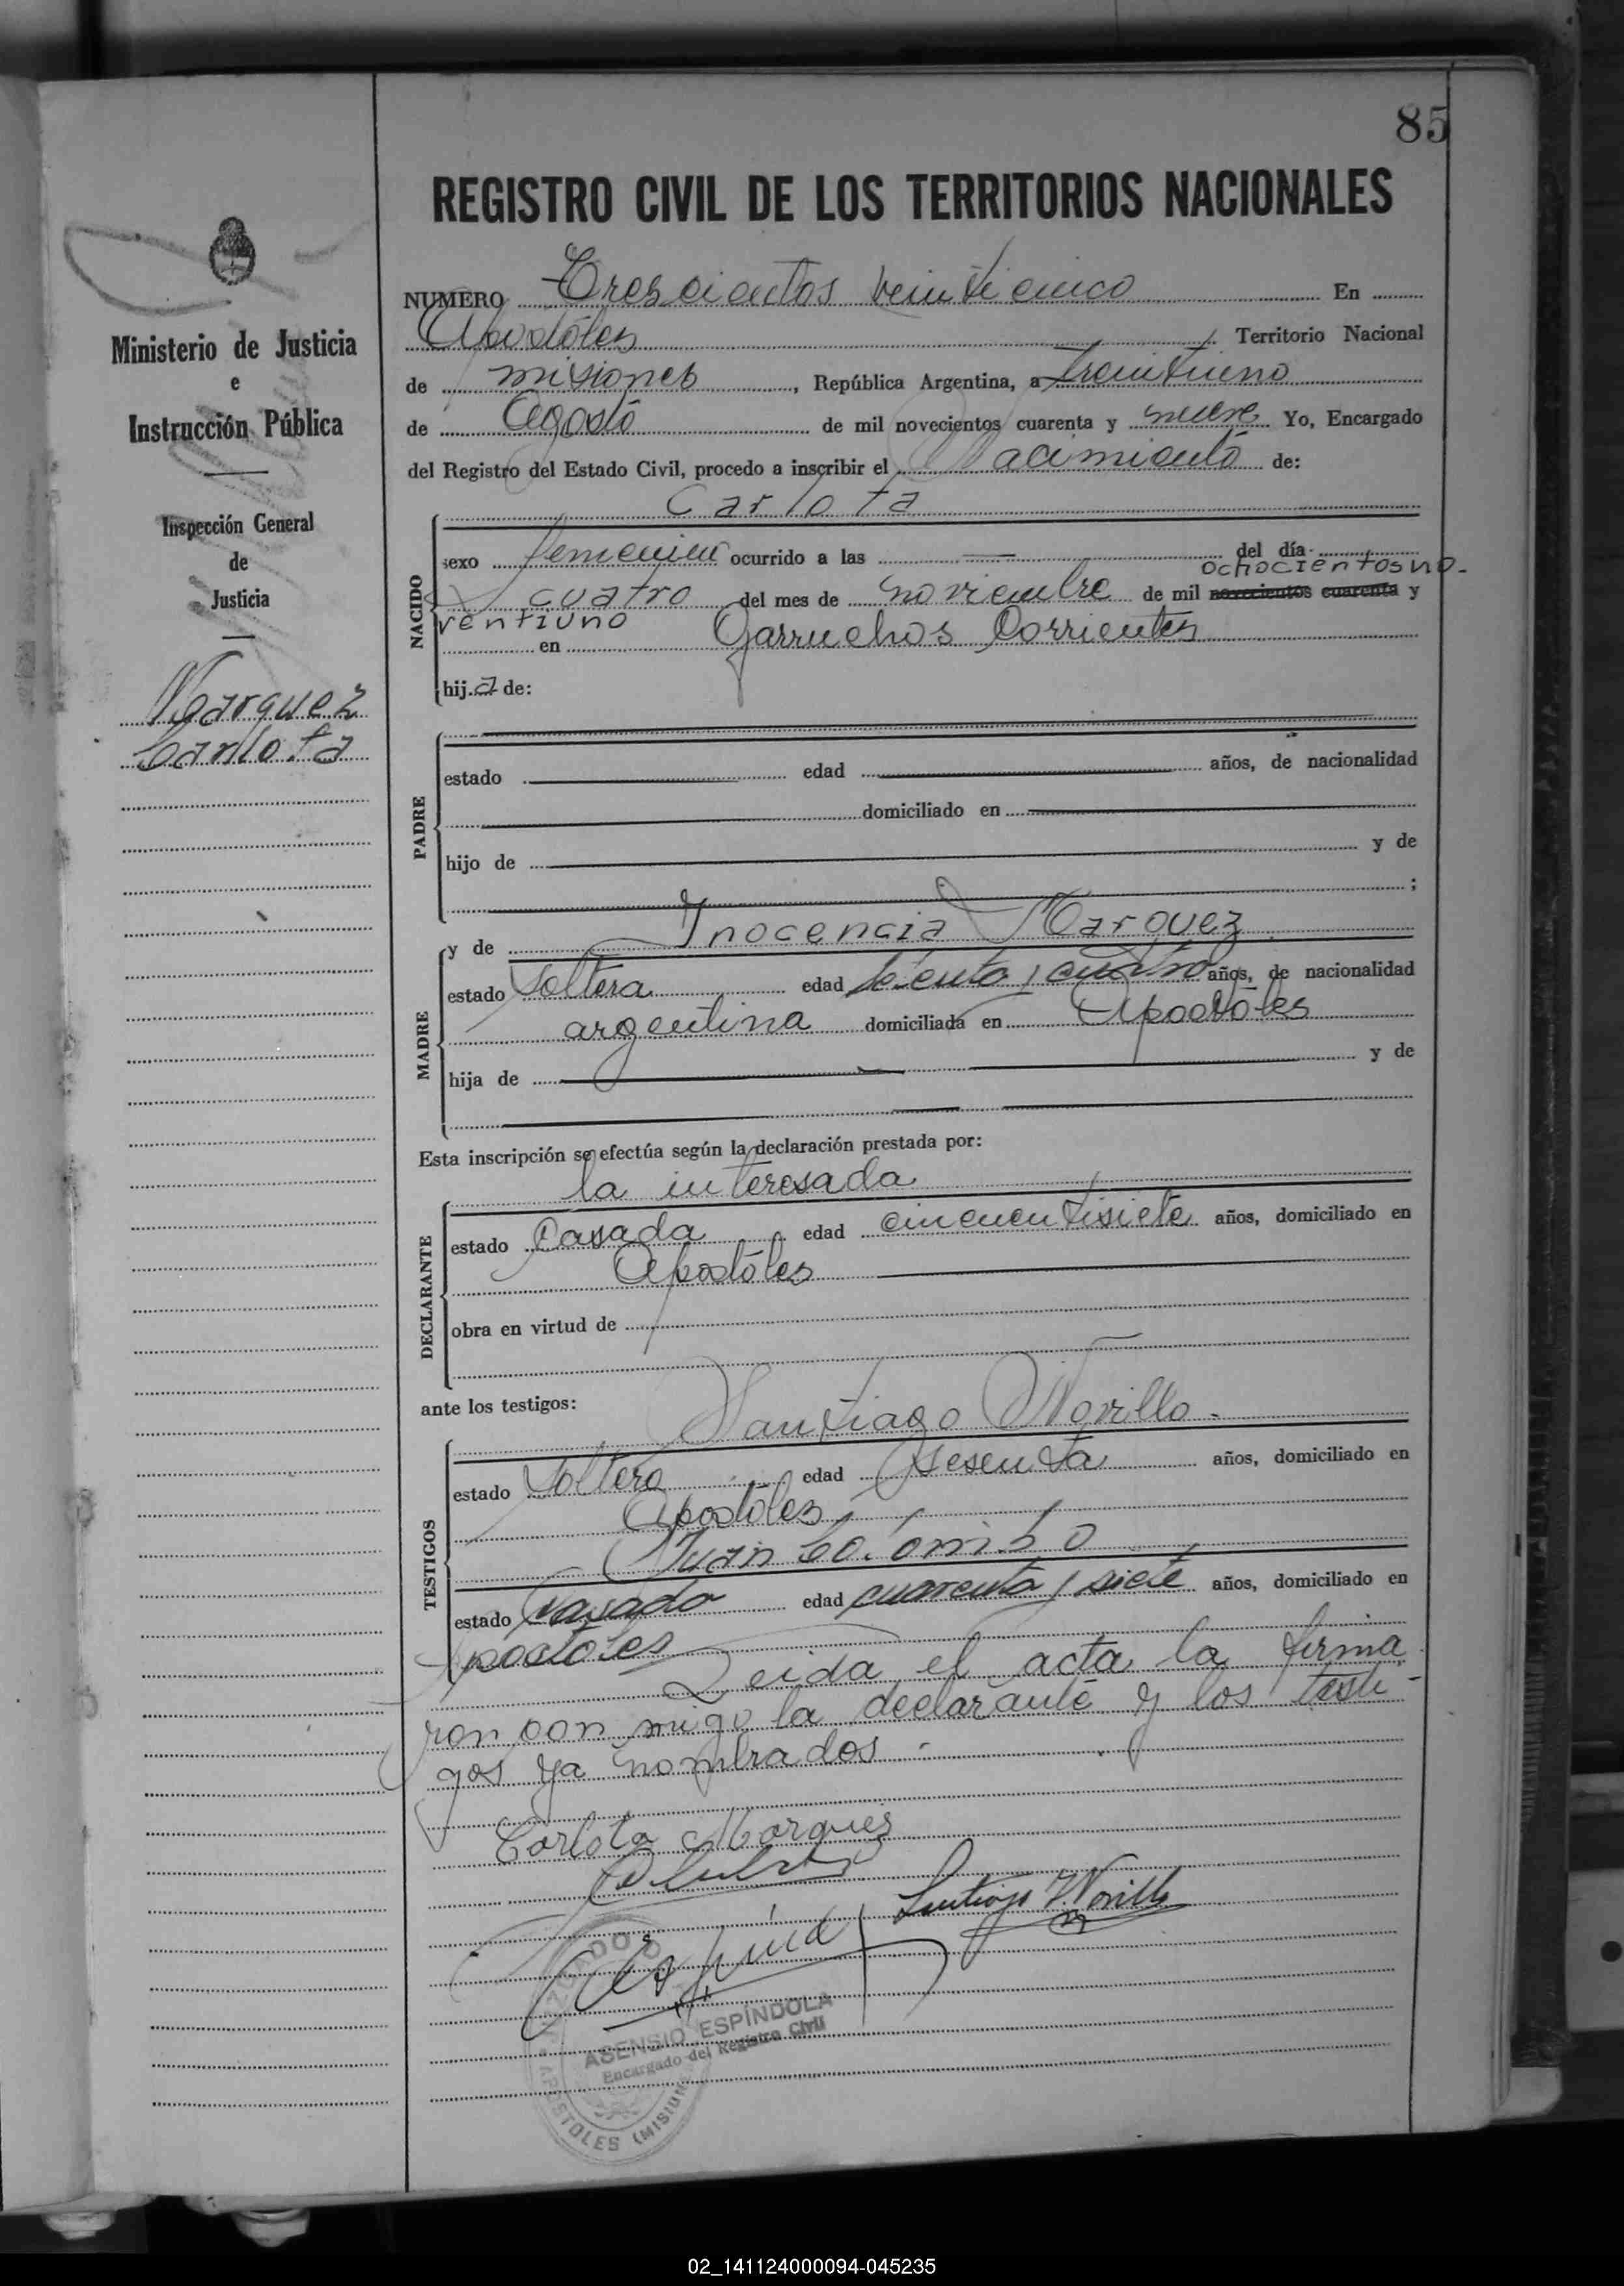 85
REGISTRO CIVIL DE LOS TERRITORIOS NACIONALES
Ministerio de Justicia
e
Instrucción Pública
Inspección General
de
Justicia
Marquez
Carlota
NUMERO Trescientos veinticinco En
Apostóles Territorio Nacional
de misiones, República Argentina, a treintiuno
de Agosto de mil novecientos cuarenta y nueve Yo, Encargado
del Registro del Estado Civil, procedo a inscribir el Nacimiento de:
Carlota
NACIDO
sexo femenino ocurrido a las — del día
ochocientosno-
cuatro del mes de noviembre de mil novecientos cuarenta y
ventiuno en Garruchos Corrientes
hija de:
PADRE
estado edad años, de nacionalidad
domiciliado en
hijo de y de
;
MADRE
y de Inocencia Marquez
estado Soltera edad ciento y cuatro años, de nacionalidad
argentina domiciliada en Apostóles
hija de y de
Esta inscripción se efectúa según la declaración prestada por:
la interesada
DECLARANTE
estado Casada edad cincuentisiete años, domiciliado en
Apostóles
obra en virtud de
ante los testigos:
Santiago Novillo.
TESTIGOS
estado Soltero edad Sesenta años, domiciliado en
Apostóles
Juan
estado Casado edad cuarenta y siete años, domiciliado en
Apostoles Leida el acta la firma
ron con migo la declarante y los testi-
gos ya nombrados
Carlota Marquez
Santiago Novillo
ASENSIO ESPÍNDOLA
Encargado del Registro Civil
APOSTOLES (MISIONES
02_141124000094-045235